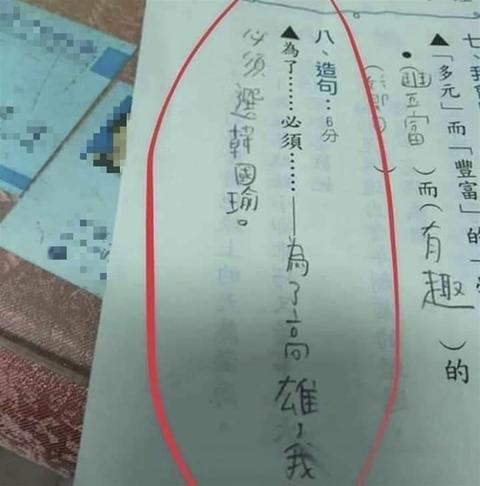 ▲「多元」而「豐富」的
(豐富)而(有趣)的
八、造句:6分
▲為了……必須……——為了高雄,我
必須選韓國瑜。